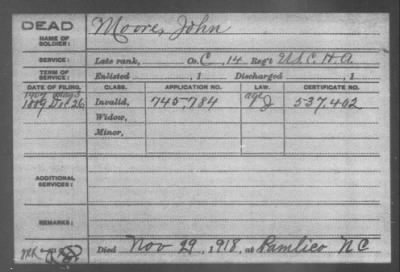 DEAD
NAME OF SOLDIER:
Moore, John
SERVICE:
Late rank, Co. C, 14 Reg't U.S.C.H.A.
TERM OF SERVICE:
Enlisted , 1 Discharged , 1
DATE OF FILING. CLASS. APPLICATION NO. LAW. CERTIFICATE NO.
1907 May 3 age
1889 Dec 26 Invalid, 745,784 J 537,402
Widow,
Minor,
ADDITIONAL SERVICES:
REMARKS:
Died Nov 29, 1918, at Pamlico NC